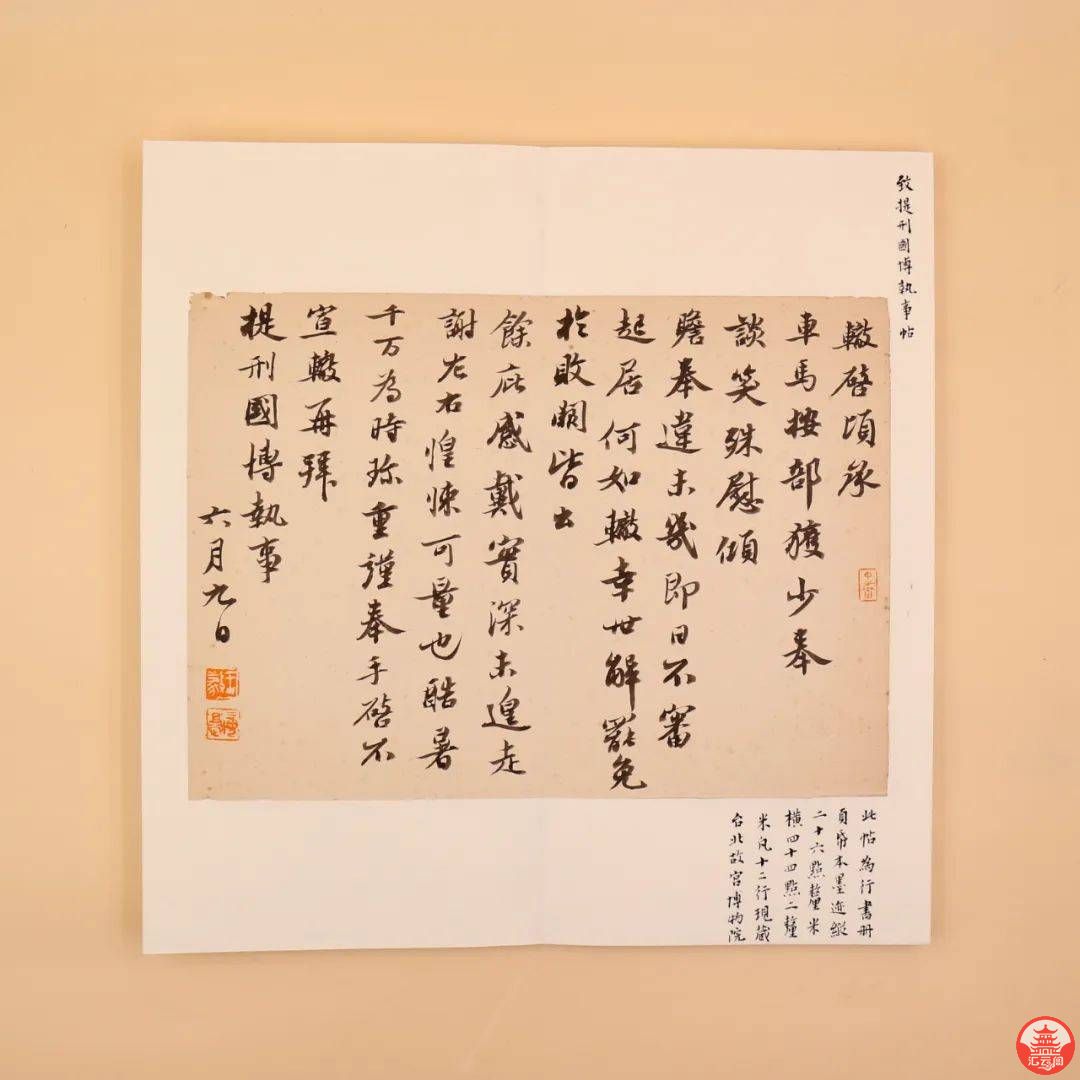 致提刑國博執事帖
轍啓頃承
車馬按部獲少奉
談笑殊慰傾
瞻奉違未幾即日不審
起居何如轍幸世解罷免
於敗闕皆出
餘庇感戴實深未遑走
謝左右惶悚可量也酷暑
千万為時珎重謹奉手啓不
宣轍再拜
提刑國博執事
六月九日
此帖為行書册
頁帋本墨迹縱
二十六點釐米
橫四十四點二釐
米凡十二行現藏
台北故宮博物院
汇云阁